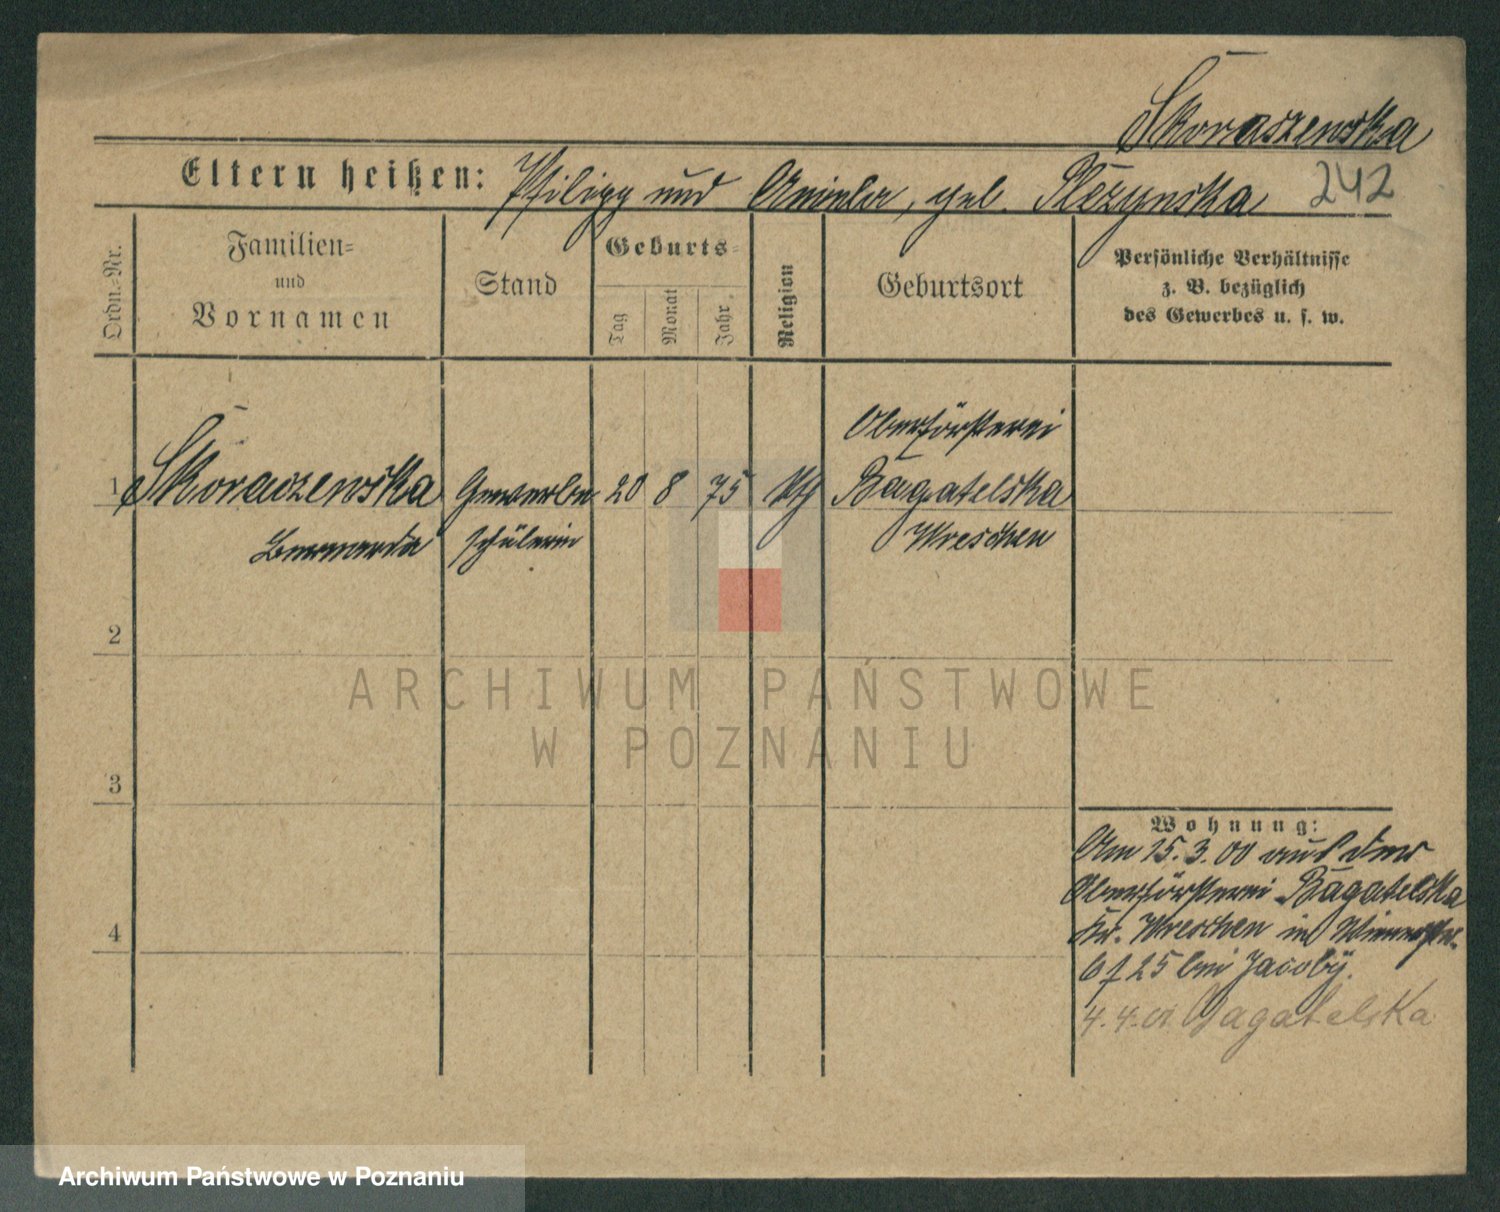 Skoraszewska
Eltern heißen: Philipp und Aniela, geb. Plezynska
242
Ordn.-Nr.
Familien-
und
Vornamen
Stand
Geburts-
Tag
Monat
Jahr
Religion
Geburtsort
Persönliche Verhältnisse
z. B. bezüglich
des Gewerbes u. s. w.
Oberförsterei
1 Skoraszewska Gewerbe 20 8 75 kth Bagatelska
Bernarda schülerin Wreschen
2
3
4
Wohnung:
Am 15.3.00 aus der
Oberförsterei Bagatelska
Kr. Wreschen in
25 bei Jacoby.
4.4.01 Bagatelska
ARCHIWUM PAŃSTWOWE
W POZNANIU
Archiwum Państwowe w Poznaniu